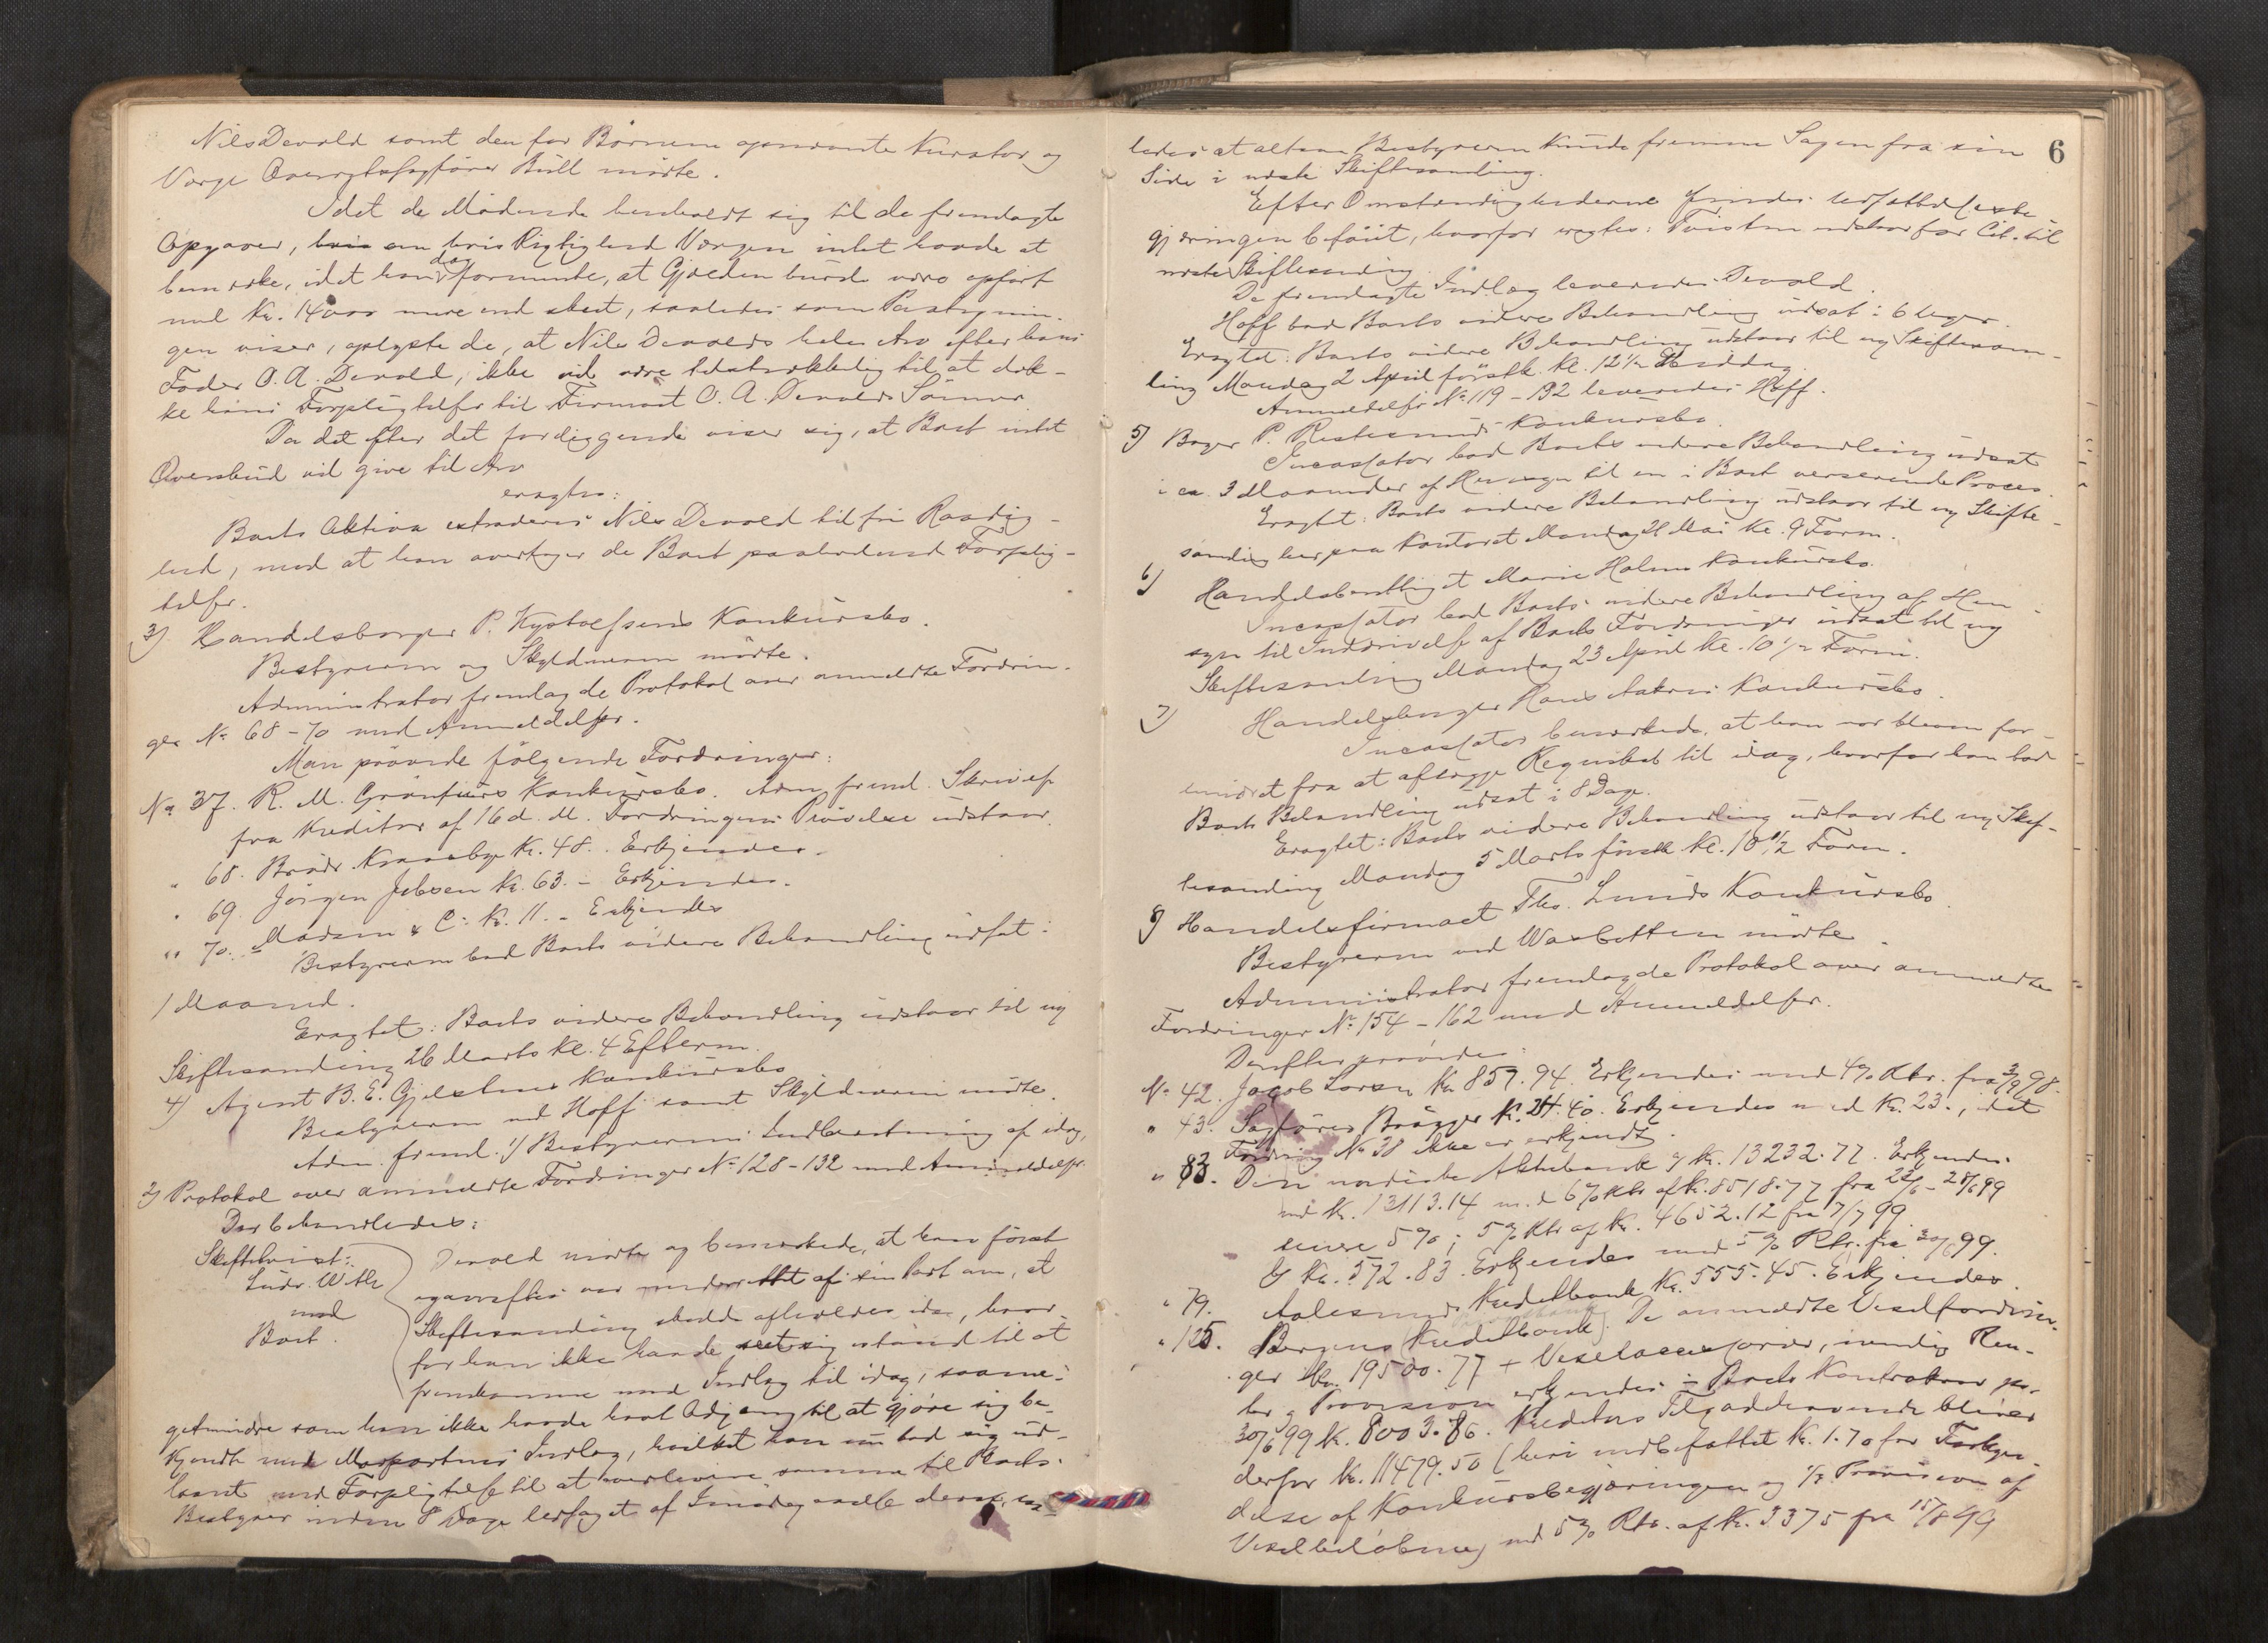 Nils Devold samt den for Börnene opnævnte Kurator og
Værge Overretssagfører Bull mödte.
Idet de Mödende henholdt sig til de fremlagte
Opgaver, hvis om hvis Rigtighed Værgen intet havde at
bemærke, idet han dog formente, at Gjælden burde være opført
med Kr. 14000 mere end skeet, saaledes som Paategnin-
gen viser, oplyste de, at Nils Devolds hele Arv efter hans
Fader O. A. Devold, ikke vil være tilstrækkelig til at dæk-
ke hans Forpligtelser til Firmaet O. A. Devolds Sönner.
Da det efter det foreliggende viser sig, at Boet intet
Overskud vil give til Arv
eragtes:
Boets Aktiva extraderes Nils Devold til fri Raadig-
hed, mod at han overtager de Boet paahvilende Forplig-
telser.
3) Handelsborger P. Kystolfsens Konkursbo.
Bestyreren og Skyldneren mödte.
Administrator fremlagde Protokol over anmeldte Fordrin-
ger No 68-70 med Anmeldelser.
Man prövede fölgende Fordringer:
No 37. R. M. Grönfurs Konkursbo. Adm. freml. Skrivelse
fra Kreditor af 16 d. M. Fordringens Prövelse udstaar.
" 68. Brödr. Kraasbye Kr. 48.- Erkjendes.
" 69. Jörgen Jebsen Kr. 63.- Erkjendes.
" 70. Madsen & Co Kr. 11.- Erkjendes
Bestyreren bad Boets videre Behandling udsat i
1 Maaned.
Eragtet: Boets videre Behandling udstaar til ny
Skiftesamling 26 Marts Kl. 4 Efterm.
4) Agent B. E. Gjelstens Konkursbo
Bestyreren ved Hoff samt Skyldneren mödte.
Adm. freml. 1) Bestyrerens Indberetning af idag,
2) Protokol over anmeldte Fordringer No 128-132 med Anmeldelser.
Der behandledes:
Skiftetvist:
mod
Boet.
Devold mödte og bemærkede, at han först
igaaraftes var underrettet af sin Part om, at
Skiftesamling skulde afholdes idag, hvor-
for han ikke havde seet sig istand til at
fremkomme med Indlæg til idag, saame-
getmindre som han ikke havde havt Adgang til at gjöre sig be-
kjendt med Modpartens Indlæg, hvilket han nu bad sig ud-
laant med Forpligtelse til at overlevere samme til Boets
Bestyrer inden 8 Dage ledsaget af Imödegaaelse deraf, saa-
6
ledes at altsaa Bestyreren kunde fremme Sagen fra sin
Side i næste Skiftesamling.
Efter Omstændighederne findes
gjæringen beföiet, hvorfor eragtes: Tvisten udstaar for Cit. til
næste Skiftesamling.
De fremlagte Indlæg leveredes Devold.
Hoff bad Boets videre Behandling udsat i 6 Uger.
Eragtet: Boets videre Behandling udstaar til ny Skiftesam-
ling Mandag 2 April förstk. Kl. 12½ Middag.
Anmeldelser No 119-132 leveredes Hoff.
5) Bager P. Konkursbo.
Incassator bad Boets videre Behandling udsat
i ca. 3 Maaneder af Hensyn til en i Boet verserende Proces.
Eragtet: Boets videre Behandling udstaar til ny Skifte-
samling her paa Kontoret Mandag 21 Mai Kl. 9 Form.
6) Handelsberettiget Marie Holms Konkursbo.
Incassator bad Boets videre Behandling af Hen-
syn til Inddrivelse af Boets Fordringer udsat til ny
Skiftesamling Mandag 23 April Kl. 10½ Form.
7) Handelsborger Hans Aakres Konkursbo.
Incassator bemærkede, at han var bleven for-
hindret fra at aflægge Regnskab til idag, hvorfor han bad
Boets Behandling udsat i 8 Dage.
Eragtet: Boets videre Behandling udstaar til ny Skif-
tesamling Mandag 5 Marts förstk. Kl. 10½ Form.
8) Handelsfirmaet Ths. Lunds Konkursbo.
Bestyreren ved Wasbotten mödte.
Administrator fremlagde Protokol over anmeldte
Fordringer No 154-162 med Anmeldelser.
Derefter prövedes:
No 42. Jacob Larsen Kr. 857.94. Erkjendes med 4% Rtr. fra 3/9 98.
" 43. Sagförer Brögger Kr. 24.40. Erkjendes med Kr. 23., idet
Fordring No 38 ikke er erkjendt.
" 83. Den nordiske Aktiebank a/ Kr. 13232.77. Erkjendes
med Kr. 13113.14 med 6% Rtr. af Kr. 8518.77 fra 22/6 - 28/6 99
senere 5%; 5% Rtr. af Kr. 4652.12 fra 7/7 99.
b/ Kr. 572.83. Erkjendes med 5% Rtr. fra 30/6 99.
" 79. Aalesunds Kreditbank Kr. 555.45. Erkjendes.
" 125. Bergens Kreditbank. De anmeldte Vexelfordrin-
ger Kr. 19500.77 + Vexelaccessorier, nemlig Ren-
ter, Provision erkjendes ÷ Boets Kontrakrav pr.
30/6 99 Kr. 8003.86. Kreditors Tilgodehavende bliver
derfor Kr. 11479.50 (heri indbefattet Kr. 1.70 for Forkyn-
delse af Konkursbegjæringen og 1/3 Provision af
Vexelbelöbene) med 5% Rtr. af Kr. 3375 fra 15/8 99